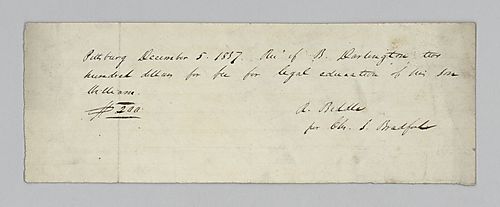 Pittsburg December 5. 1837. Rec'd of B. Darlington two
hundred dollars for fee for legal education of his son
William.
$200.
R. Biddle
per Chs. S. Bradford